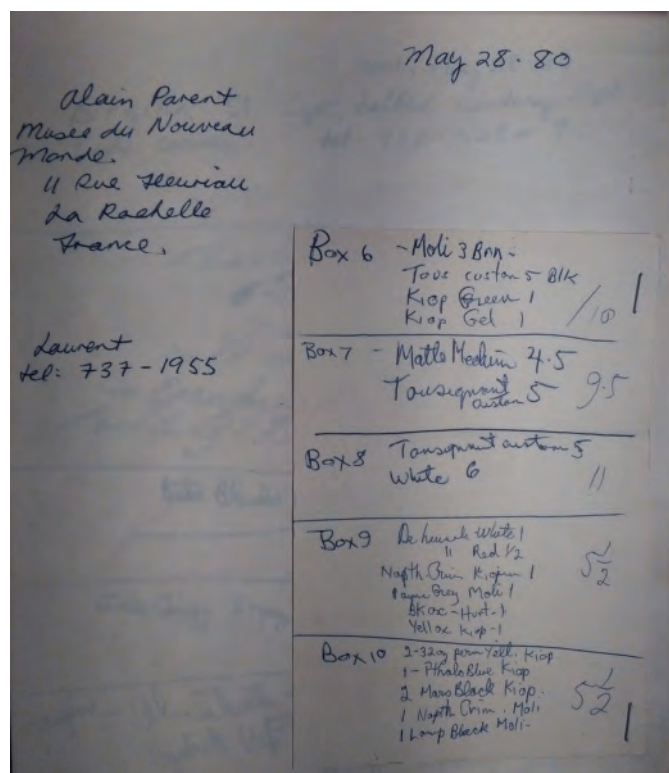 May 28. 80
Alain Parent
Musee du Nouveau
Monde.
11 Rue Fleuriau
La Rochelle
France.
Laurent
tel: 737-1955
Box 6 - Moli 3 Brn -
Tous custom 5 Blk
Kiop Green 1
Kiop Gel 1
/10
Box 7 - Matte Medium 4.5
Tousignant
custom 5
9.5
Box 8 Tousignant custom 5
White 6
11
Box 9 White 1
11 Red 1/2
Napth Crim Kiop 1
Payne Grey Moli 1
BK ox - Hurt - 1
Yell ox Kiop - 1
5 1/2
Box 10 2-32oz perm Yell. Kiop
1 - Pthalo Blue Kiop
2 Mars Black Kiop.
1 Napth Crim. Moli
1 Lamp Black Moli -
5 1/2